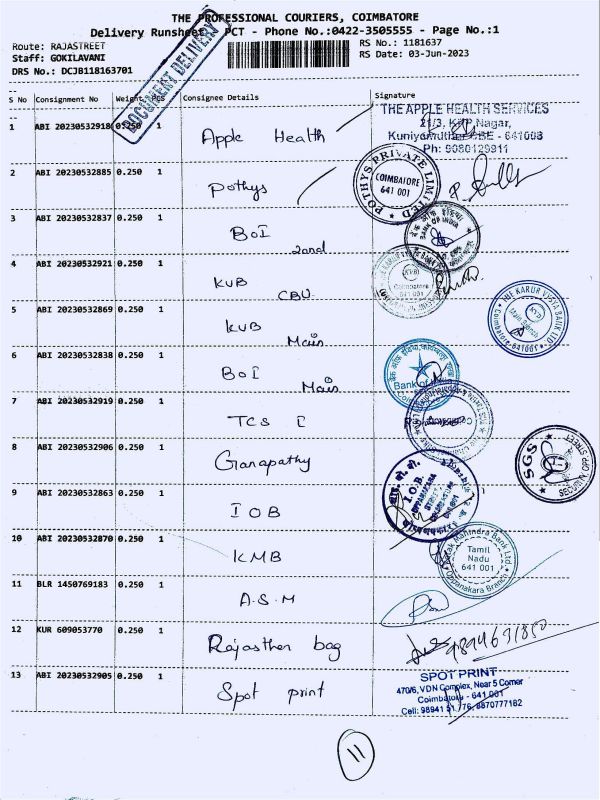 THE PROFESSIONAL COURIERS, COIMBATORE
Delivery Runsheet PCT - Phone No.:0422-3505555 - Page No.:1
DOCUMENT DELIVERY
Route: RAJASTREET
RS No.: 1181637
Staff: GOKILAVANI
RS Date: 03-Jun-2023
DRS No.: DCJB118163701
S No Consignment No Weight PCS Consignee Details Signature
1 ABI 20230532918 0.250 1 Apple Health
THE APPLE HEALTH SERVICES
21/3, KPP Nagar,
Kuniyamuthur CBE - 641008
Ph:
2 ABI 20230532885 0.250 1 Pothys
POTHYS PRIVATE LIMITED
COIMBATORE
641 001
3 ABI 20230532837 0.250 1 BOI
BANK OF INDIA
4 ABI 20230532921 0.250 1 KVB CBU
KVB
Coimbatore
5 ABI 20230532869 0.250 1 KVB Main
THE KARUR VYSYA BANK LTD
KVB
Main Branch
Coimbatore 641001
6 ABI 20230532838 0.250 1 BOI Main
Bank of
7 ABI 20230532919 0.250 1 TCS
8 ABI 20230532906 0.250 1 Ganapathy
SGS
9 ABI 20230532863 0.250 1 IOB
I.O.B
10 ABI 20230532870 0.250 1 KMB
Kotak Mahindra Bank Ltd.
Tamil
Nadu
641 001
Uppanakara Branch
11 BLR 1450769183 0.250 1 A.S.M
12 KUR 609053770 0.250 1 Rajasthan bag
9894631850
13 ABI 20230532905 0.250 1 Spot print
SPOT PRINT
470/6, VDN Complex, Near 5 Corner
Coimbatore - 641 001
Cell: 98941 76, 8870777182
11